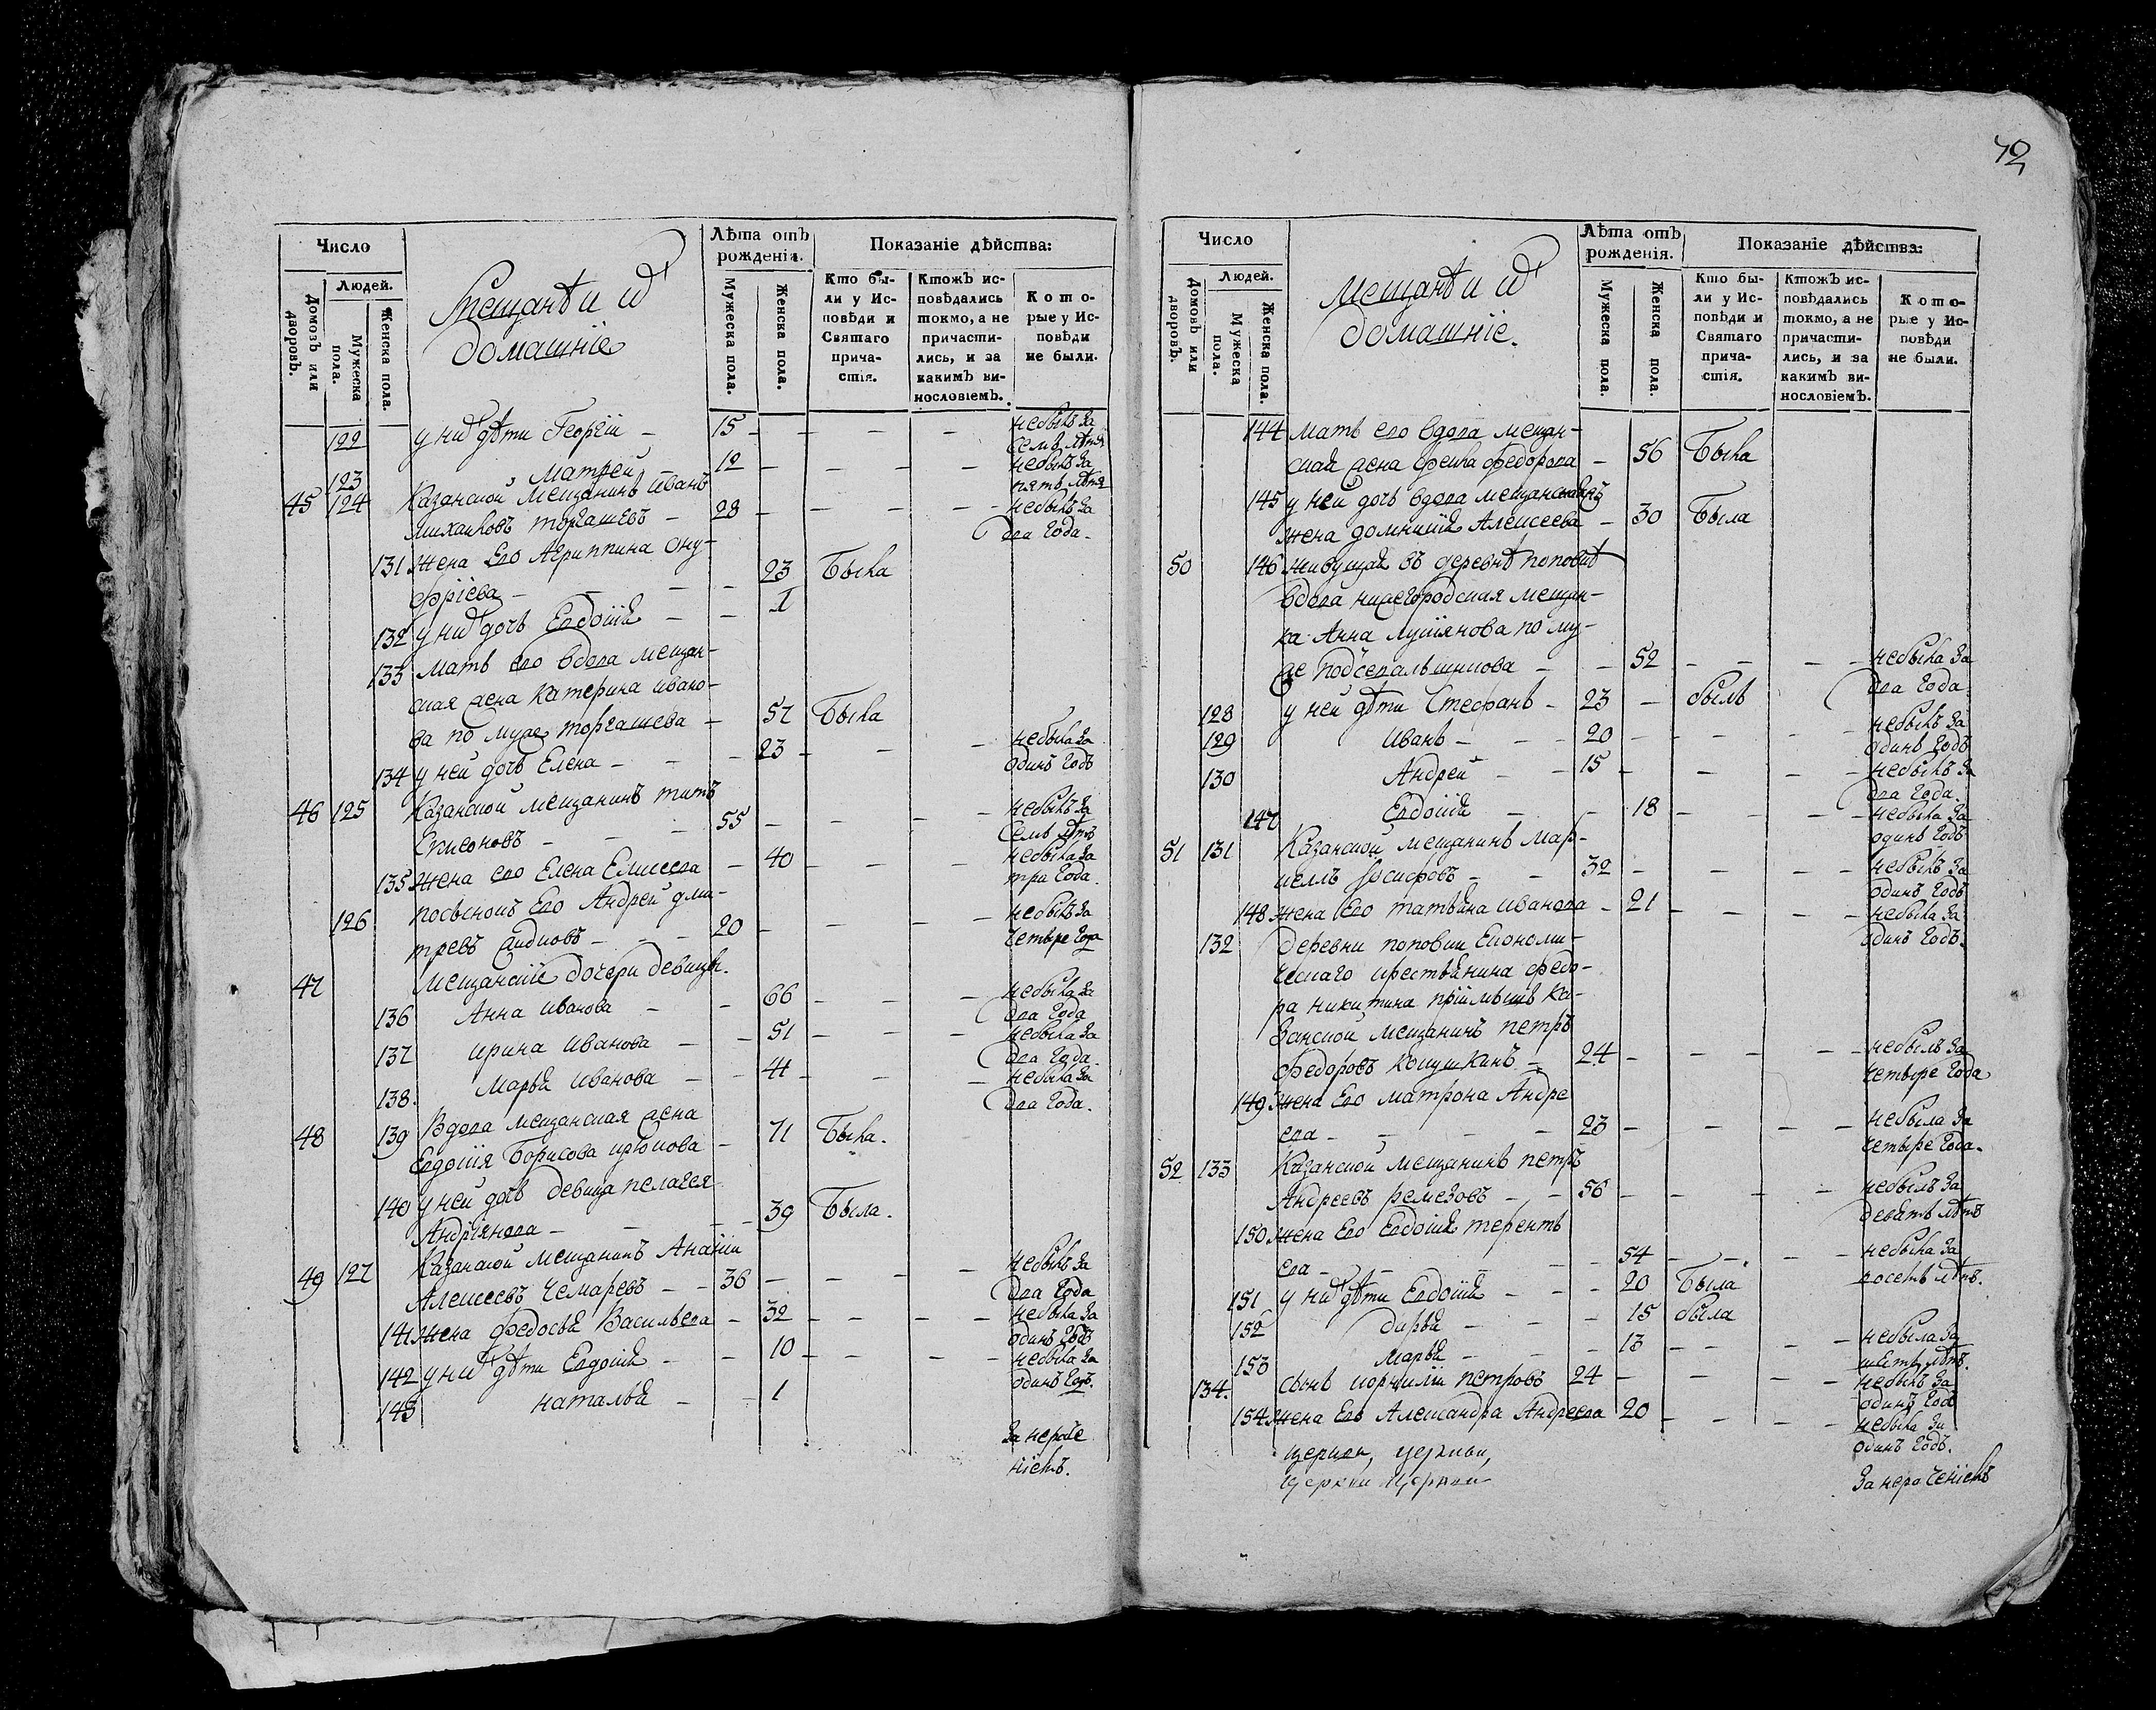 Число
Людей.
Домовъ или дворовъ.
Мужеска пола.
Женска пола.
Мещанѣ и ихъ
домашнiе
Лѣта отъ рожденiя.
Мужеска пола.
Женска пола.
Показанiе дѣйства:
Кто были у Исповѣди и Святаго причастiя.
Ктожъ исповѣдались токмо, а не причастились, и за какимъ винословiемъ.
Которые у Исповѣди не были.
122 у них дѣти Георгiи – 15 – – – небылъ за
семь лѣтъ
123 Матфей – 12 – – – небылъ за
пять лѣтъ
45 124 Казанской мещанинъ Иванъ
Михаиловъ торгашевъ – 28 – – – небылъ за
два года.
131 жена его Агриппина Ону-
фрiева – – – 23 Была
132 у них дочь Евдокiя – – 1
133 мать его вдова мещан-
ская жена Катерина Ивано-
ва по муже торгашева – 57 Была
134 у ней дочь Елена – – – 23 – – – небыла за
одинъ годъ
46 125 Казанской мещанинъ титъ
– – 55 – – – небылъ за
семь лѣтъ
135 жена его Елена Елисеева – 40 – – – небыла за
три года.
126 посынокъ его Андрей дми-
тревъ – – 20 – – – небылъ за
четыре года
47 Мещанскiе дочери девицы.
136 Анна Иванова – – 66 – – – небыла за
два года
137 Ирина Иванова – – 51 – – – небыла за
два года.
138. Марья Иванова – – 41 – – – небыла за
два года.
48 139 Вдова мещанская жена
Евдокiя Борисова – 71 Была.
140 у ней дочь девица пелагея
Андрiянова – – – 39 Была.
49 127 Казанской мещанинъ Ананiи
Алексеевъ Чемаревъ – – 36 – – – небылъ за
два года
141 жена Федосья Васильева – 32 – – – небыла за
одинъ годъ
142 у них дѣти Евдокiя – – 10 – – – небыла за
одинъ годъ.
143 наталья – – 1
За нераче
нiемъ.
72
Число
Людей.
Домовъ или дворовъ.
Мужеска пола.
Женска пола.
мещанѣ и ихъ
домашнiе.
Лѣта отъ рожденiя.
Мужеска пола.
Женска пола.
Показанiе дѣйства:
Кто были у Исповѣди и Святаго причастiя.
Ктожъ исповѣдались токмо, а не причастились, и за какимъ винословiемъ.
Которые у Исповѣди не были.
144 мать его вдова мещан-
ская жена Фекла Федорова – 56 Была
145 у ней дочь вдова мещанская
жена домникiя Алексеева – 30 Была
50 146 живущая въ деревнѣ поповкѣ
вдова нижегородская мещан-
ка Анна лукiянова по му-
же – – 52 – – – небыла за
два года.
128 у ней дѣти Стефанъ – 23 – былъ
129 Иванъ – – – 20 – – – небылъ за
одинъ годъ
130 Андрей – – 15 – – – небылъ за
два года.
147 Евдокiя – – 18 – – – небыла за
одинъ годъ
51 131 Казанской мещанинъ Мар-
келлъ Iосифовъ – – 32 – – – небылъ за
одинъ годъ
148 жена его татьяна Иванова – 21 – – – небыла за
одинъ годъ.
132 деревни поповки Економи-
ческаго крестьянина Федо-
ра никитина прiимышъ ка-
занской мещанинъ петръ
Федоровъ – 24 – – – небылъ за
четыре года
149 жена его матрона Андре
ева – – – – 23 – – – небыла за
четыре года.
52 133 Казанской мещанинъ петръ
Андреевъ ремезовъ – – 56 – – – небылъ за
девять лѣтъ
150 жена его Евдокiя теренть
ева – – – – 54 – – – небыла за
восемь лѣтъ.
151 у них дѣти Евдокiя – – – 20 Была
152 дарья – – – 15 была
153 Марья – – – 13 – – – небыла за
шесть лѣтъ.
134. сынъ корнилiи петровъ 24 – – – небылъ за
одинъ годъ
154 жена его Александра Андреева 20 – – – небыла за
одинъ годъ.
церкви, церкви,
Церкви Церкви
За нераченiемъ